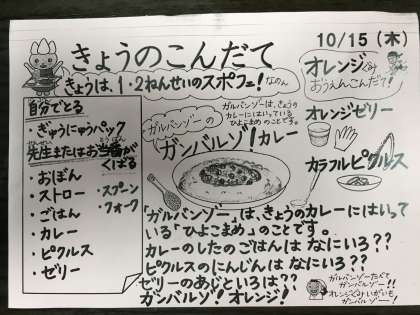 きょうのこんだて
10/15 (木)
きょうは、1・2ねんせいのスポフェ!なのん
オレンジぐみ
おうえんこんだて!
自分でとる
・ぎゅうにゅうパック
先生またはお当番が
くばる
・おぼん
・ストロー
・スプーン
・フォーク
・ごはん
・カレー
・ピクルス
・ゼリー
ガルバンゾーは、きょうの
カレーにはいっている
ひよこまめのことです。
ガルバンゾーの
ガンバルゾ!カレー
オレンジゼリー
カラフルピクルス
「ガルバンゾー」は、きょうのカレーにはいって
いる「ひよこまめ」のことです。
カレーのしたのごはんは なにいろ??
ピクルスのにんじんは なにいろ??
ゼリーのあじといろは??
ガンバルゾ!オレンジ!
ガルバンゾーたべて
ガンバルゾー!!
オレンジぐみいがいも
ガンバルゾー!